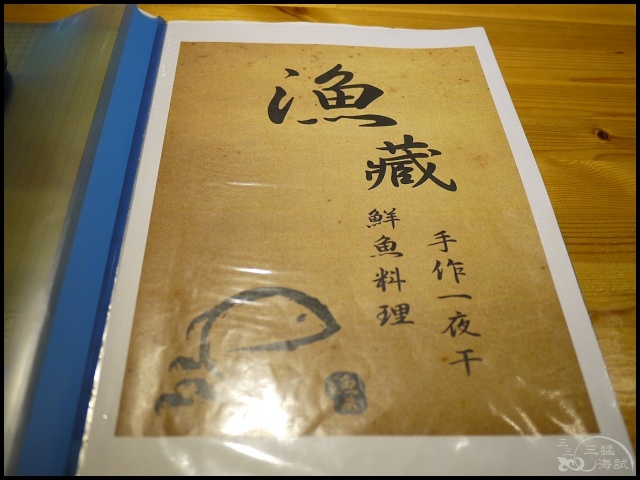 漁藏
手作一夜干
鮮魚料理
三三三猛
海試